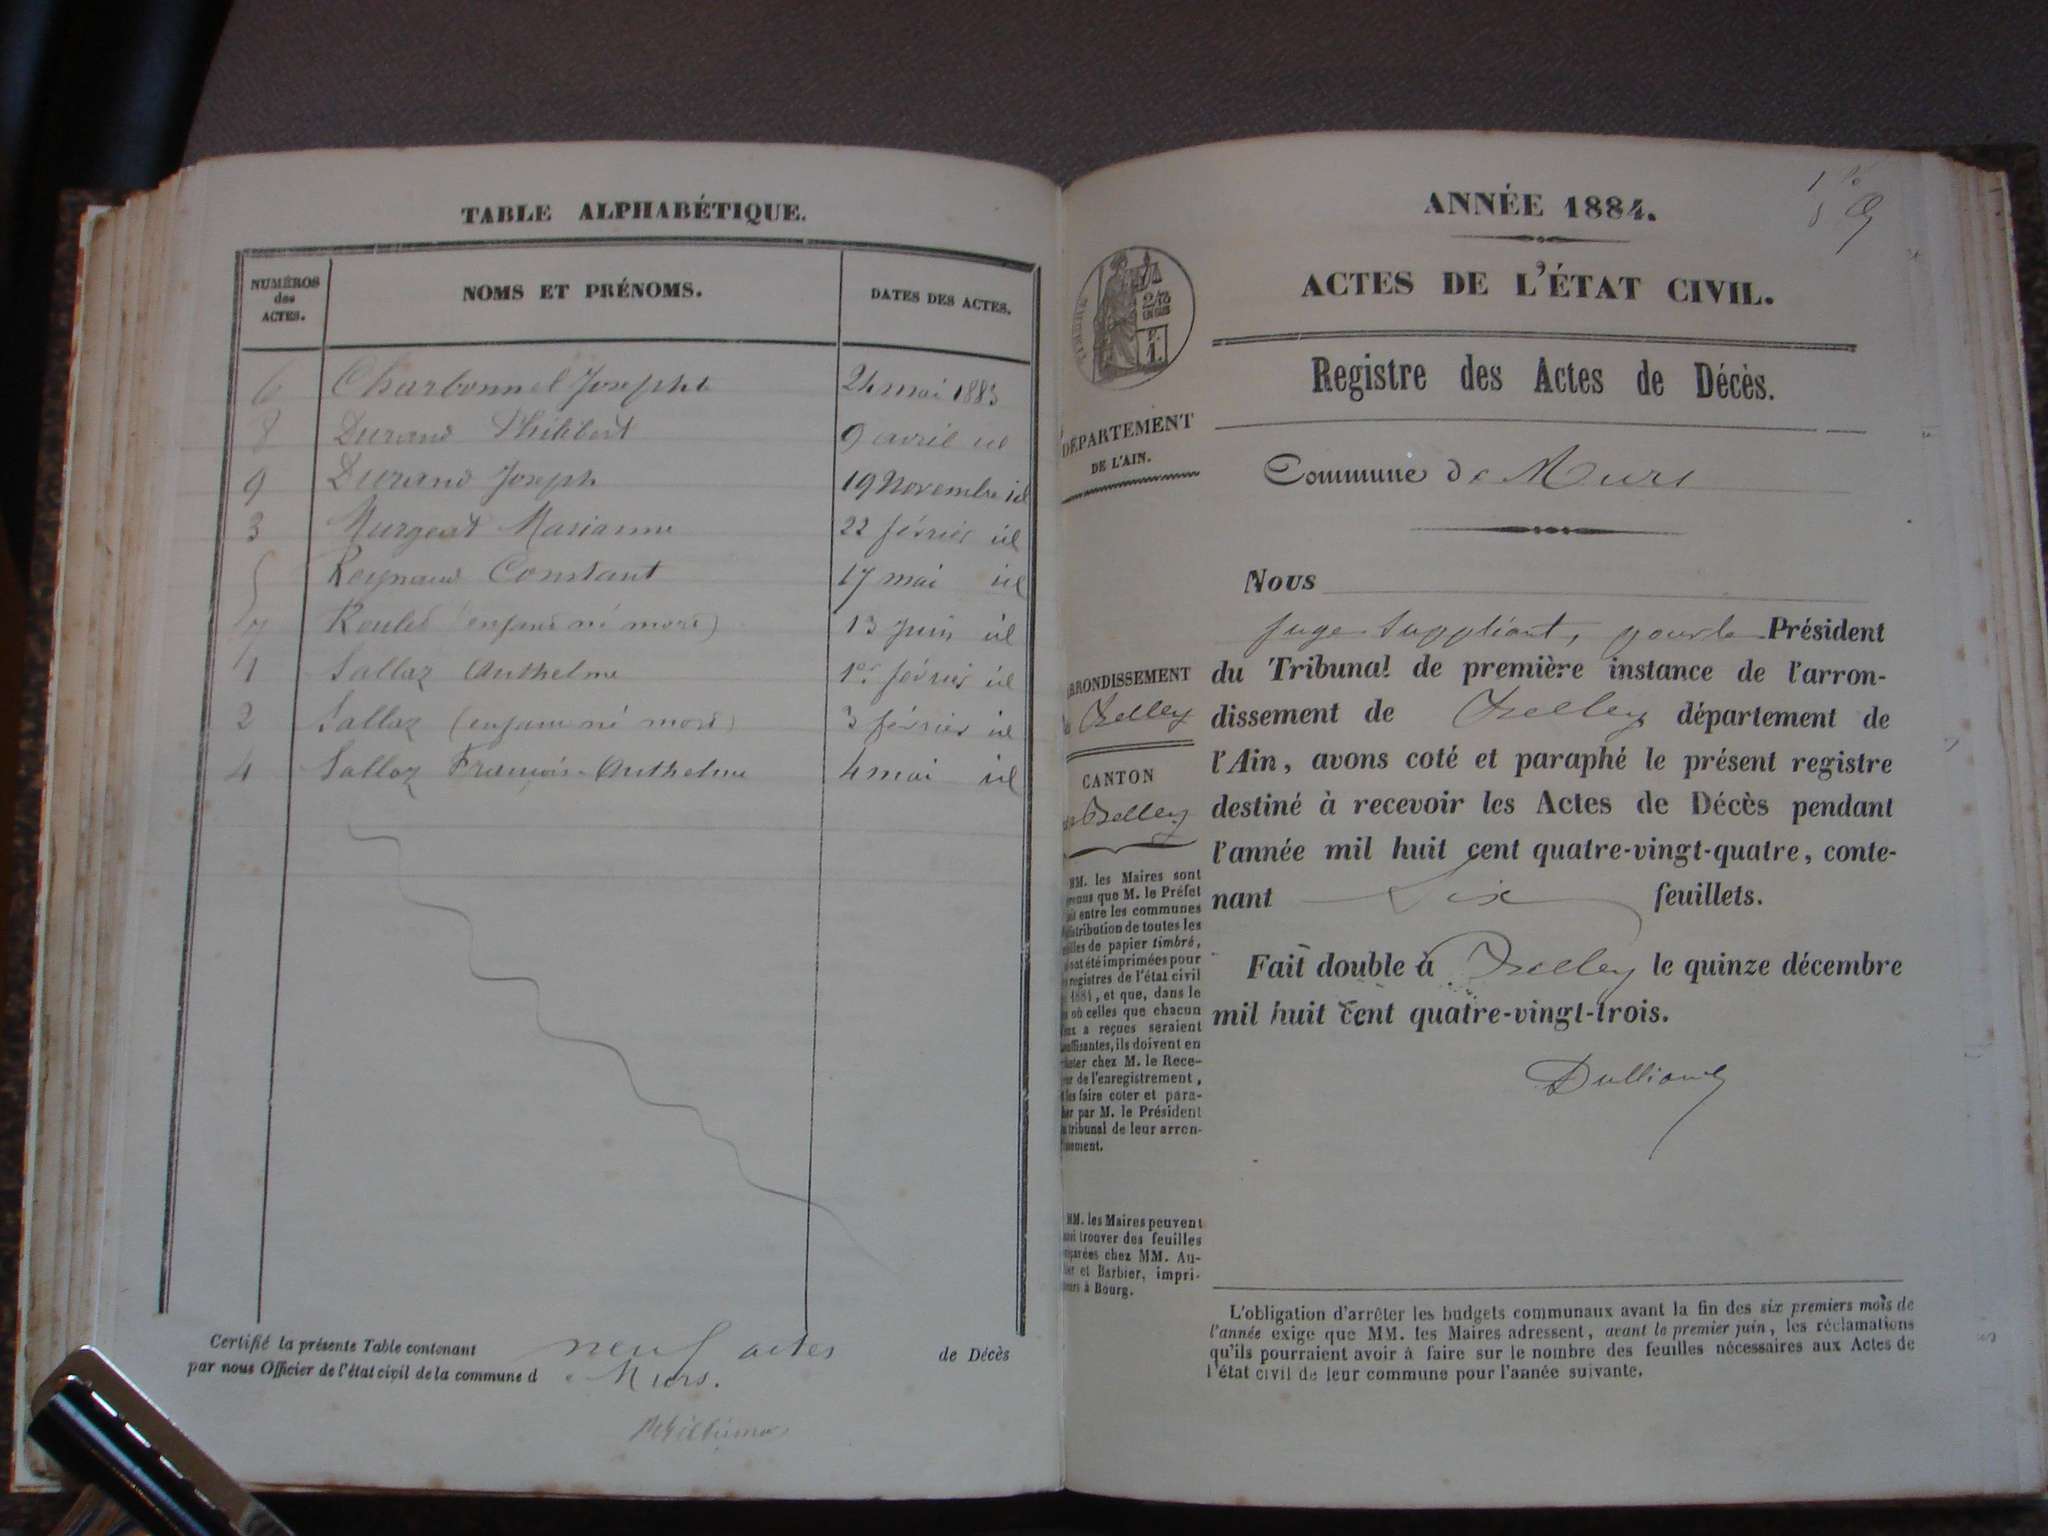 TABLE ALPHABÉTIQUE.
NUMÉROS des ACTES. NOMS ET PRÉNOMS. DATES DES ACTES.
6 Charbonnel Josephte 24 mai 1883
8 Durand Philibert 9 avril id
9 Durand Joseph 19 Novembre id
3 Murgeat Marianne 22 février id
5 Reynaud Constant 17 mai id
7 (enfant né mort) 13 juin id
1 Sallaz Anthelme 1er février id
2 Sallaz (enfant né mort) 3 février id
4 Sallaz François Anthelme 4 mai id
Certifié la présente Table contenant neuf actes de Décès
par nous Officier de l'état civil de la commune de Murs.
ANNÉE 1884.
ACTES DE L'ÉTAT CIVIL.
2/10
EN SUS
1.
Registre des Actes de Décès.
DÉPARTEMENT
DE L'AIN.
Commune de Murs
Nous
juge suppléant, pour le Président
du Tribunal de première instance de l'arron-
dissement de Belley département de
l'Ain, avons coté et paraphé le présent registre
destiné à recevoir les Actes de Décès pendant
l'année mil huit cent quatre-vingt-quatre, conte-
nant six feuillets.
Fait double à Belley le quinze décembre
mil huit cent quatre-vingt-trois.
RRONDISSEMENT
Belley
CANTON
de Belley
MM. les Maires sont
que M. le Préfet
entre les communes
distribution de toutes les
de papier timbré,
ont été imprimées pour
registres de l'état civil
1884, et que, dans le
où celles que chacun
a reçues seraient
ils doivent en
chez M. le Rece-
de l'enregistrement,
les faire coter et para-
par M. le Président
tribunal de leur arron-
MM. les Maires peuvent
trouver des feuilles
chez MM. Au-
et Barbier, impri-
à Bourg.
L'obligation d'arrêter les budgets communaux avant la fin des six premiers mois de
l'année exige que MM. les Maires adressent, avant le premier juin, les réclamations
qu'ils pourraient avoir à faire sur le nombre des feuilles nécessaires aux Actes de
l'état civil de leur commune pour l'année suivante.